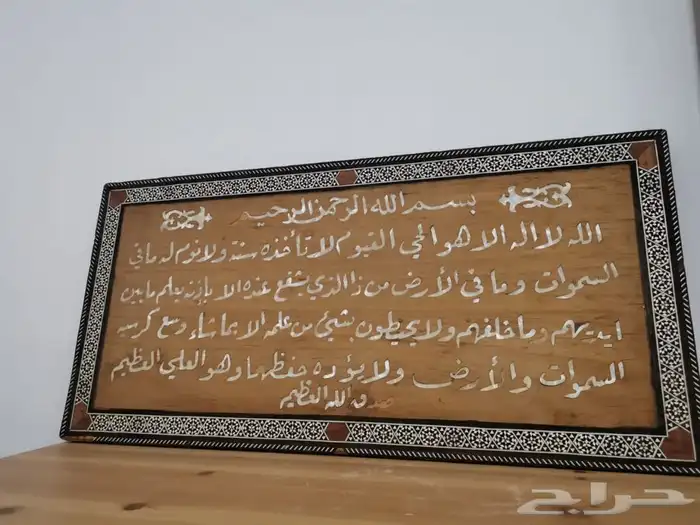 بسم الله الرحمن الرحيم
الله لا اله الا هو الحي القيوم لا تأخذه سنة ولا نوم له ما في
السموات وما في الأرض من ذا الذي يشفع عنده الا بإذنه يعلم ما بين
ايديهم وما خلفهم ولا يحيطون بشيئ من علمه الا بما شاء وسع كرسيه
السموات والأرض ولا يؤده حفظهما وهو العلي العظيم
صدق الله العظيم
حراج